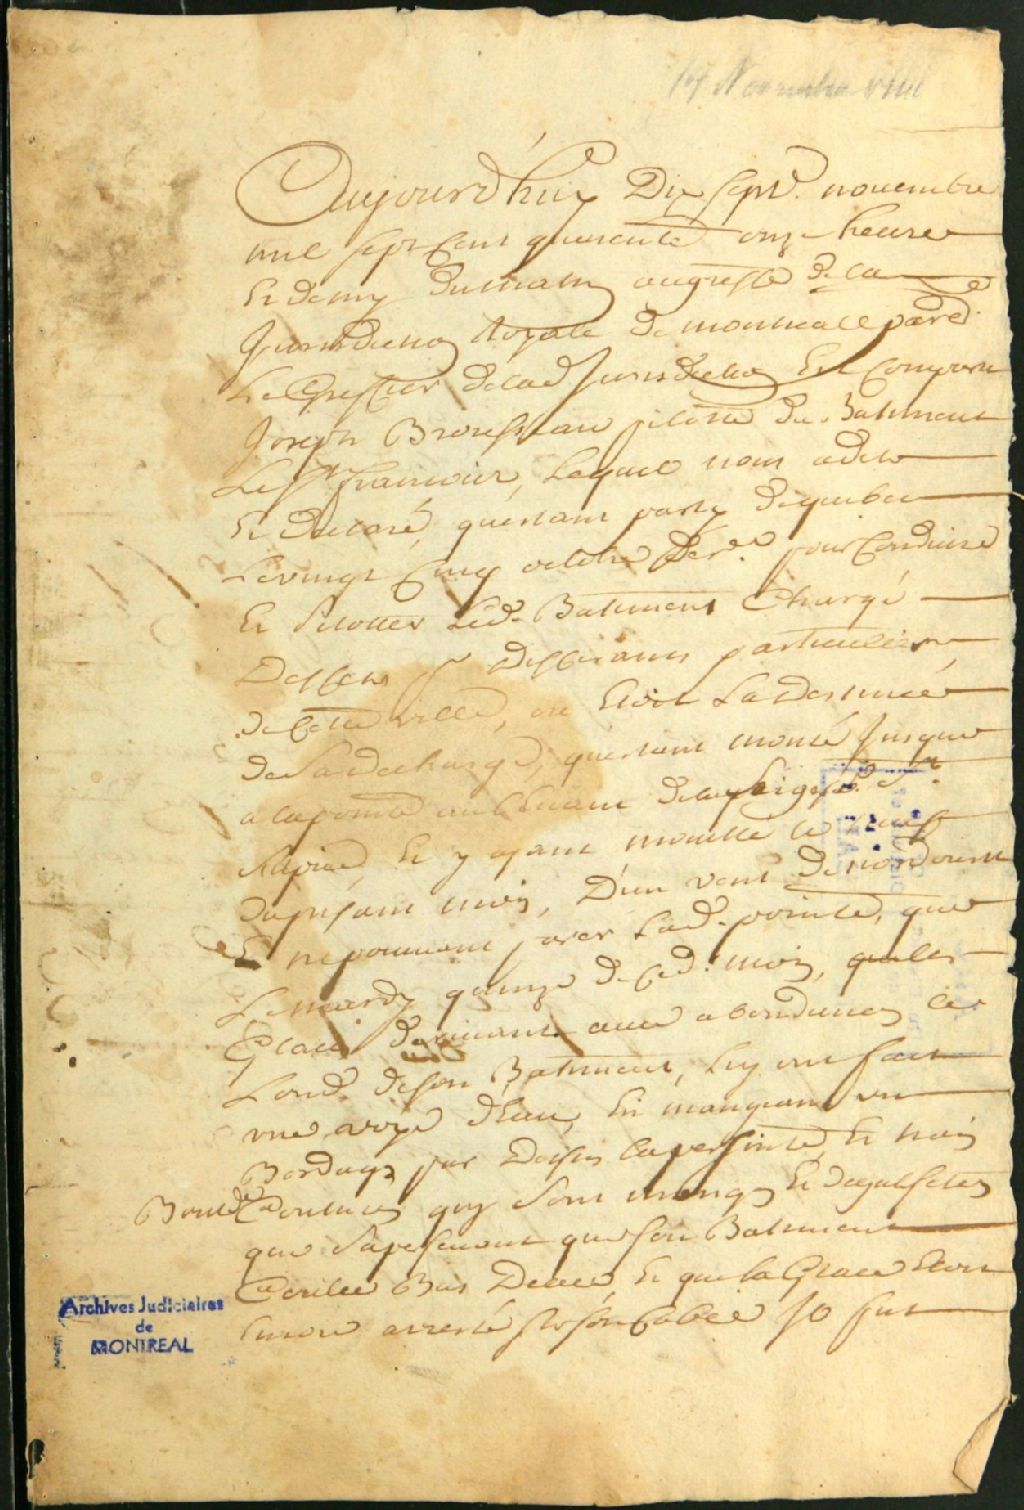 17 Novembre
Aujourd'huy Dix sept. novembre
mil sept cent quarente onze heures
Et demy du matin au greffe de la
Jurisdiction Royale de montreal pard.
Le Greffier de lad Jurisdiction Est Comparu
Joseph Brousseau pilotte du Batiment
Le St. francois, Lequel nous a dit
Et declaré, questant party de quebec
Le vingt Cinq octobre der. pour Conduire
Et Pilotter Led. Batiment Chargé
particuliers
de Cette ville, ou Etoit La destinée
de Sa decharge, questant monté Jusque
a la pointe
Et y ayant mouillé le neuf
du present mois, D'un vent de nordouest
Et ne pouvant parer Lad. pointe, que
Le mardy quinze de Ced. mois, que les
Glaces avec abondance
de son Batiment, Luy ont fait
une voye d'Eau, En mangeant un
Bordage et trois
Bouts de Coutures quy sont mangé
que Sapercevant que son Batiment
Couloit Bas Deau, Et que la Glace Etoit
Encore arresté
Archives Judiciaires
de
MONTREAL